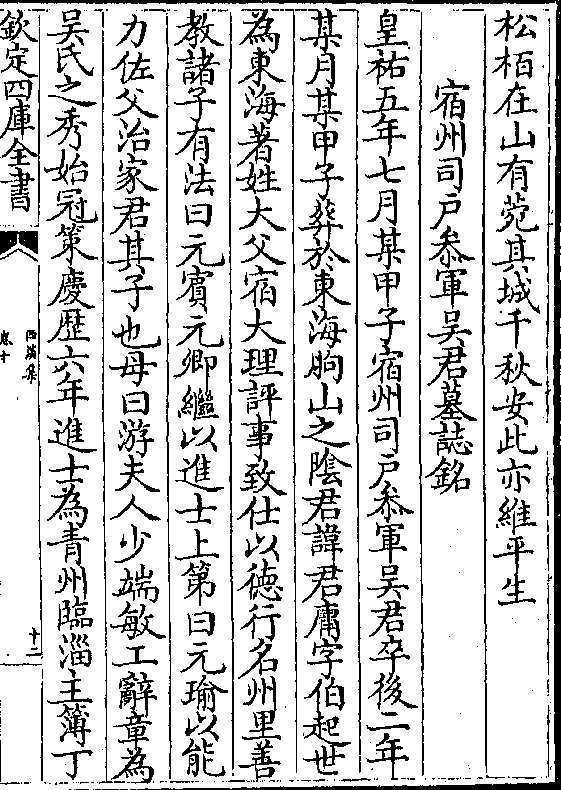 松栢在山有菀其城千秋安此亦維平生
宿州司戸叅軍吳君墓誌銘
皇祐五年七月某甲子宿州司戸叅軍吳君卒後二年
某月某甲子葬於東海朐山之陰君諱君庸字伯起世
為東海著姓大父宿大理評事致仕以徳行名州里善
教諸子有法曰元賓元卿繼以進士上第曰元瑜以能
力佐父治家君其子也母曰游夫人少端敏工辭章為
吳氏之秀始冠策慶歴六年進士為青州臨淄主簿丁
欽定四庫全書
西溪集
卷十
十二